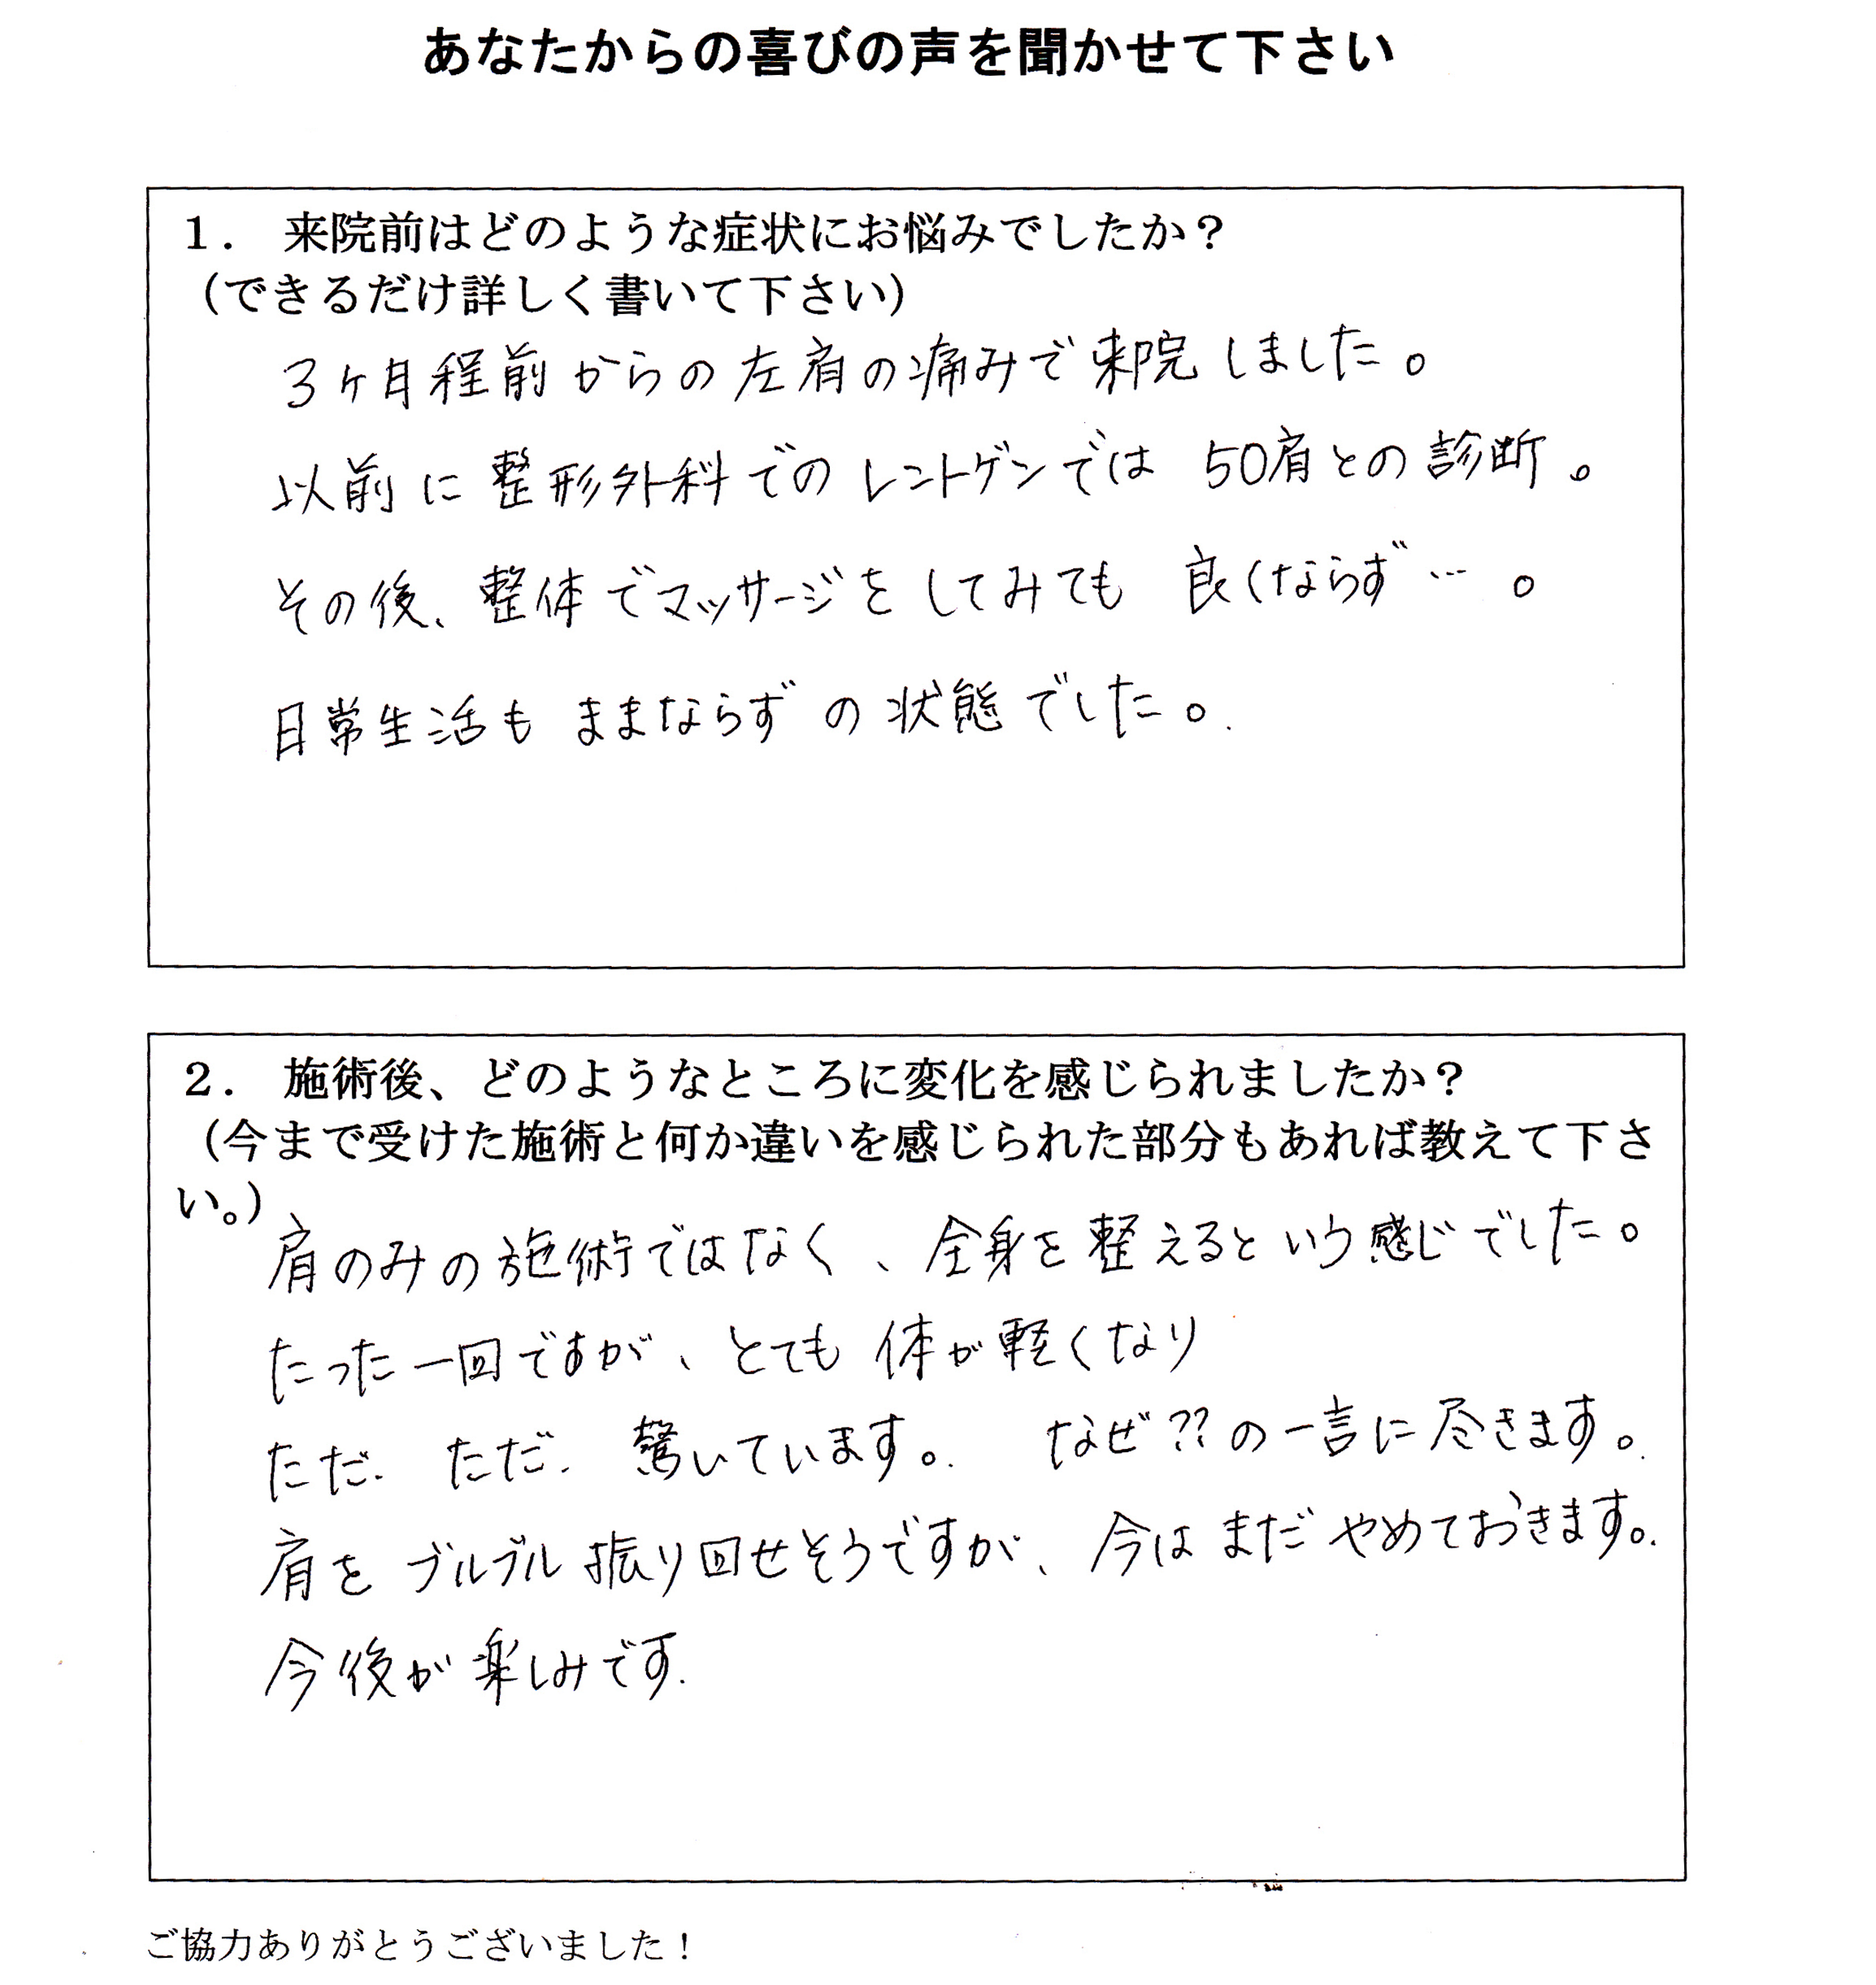 あなたからの喜びの声を聞かせて下さい
１．　来院前はどのような症状にお悩みでしたか？
（できるだけ詳しく書いて下さい）
3ヶ月程前からの左肩の痛みで来院しました。
以前に整形外科でのレントゲンでは 50肩との診断。
その後、整体でマッサージをしてみても 良くならず…。
日常生活も ままならずの状態でした。
２．　施術後、どのようなところに変化を感じられましたか？
（今まで受けた施術と何か違いを感じられた部分もあれば教えて下さ
い。）
肩のみの施術ではなく、全身を整えるという感じでした。
たった一回ですが、とても 体が軽くなり
ただ、ただ、驚いています。 なぜ??の一言に尽きます。
肩を ブルブル振り回せそうですが、今はまだやめておきます。
今後が楽しみです.
ご協力ありがとうございました！